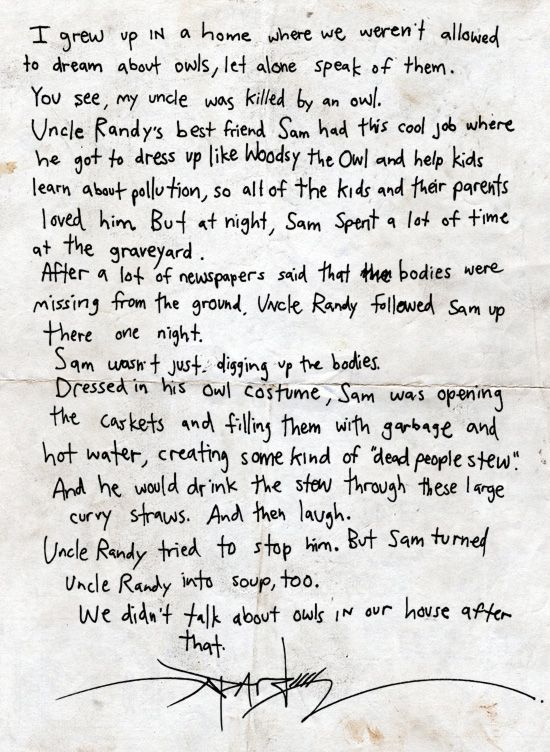 I grew up IN a home where we weren't allowed
to dream about owls, let alone speak of them.
You see, my uncle was killed by an owl.
Uncle Randy's best friend Sam had this cool job where
he got to dress up like Woodsy the Owl and help kids
learn about pollution, so all of the kids and their parents
loved him. But at night, Sam spent a lot of time
at the graveyard.
After a lot of newspapers said that the bodies were
missing from the ground, Uncle Randy followed Sam up
there one night.
Sam wasn't just digging up the bodies.
Dressed in his owl costume, Sam was opening
the caskets and filling them with garbage and
hot water, creating some kind of "dead people stew".
And he would drink the stew through these large
curvy straws. And then laugh.
Uncle Randy tried to stop him. But Sam turned
Uncle Randy into soup, too.
We didn't talk about owls IN our house after
that.